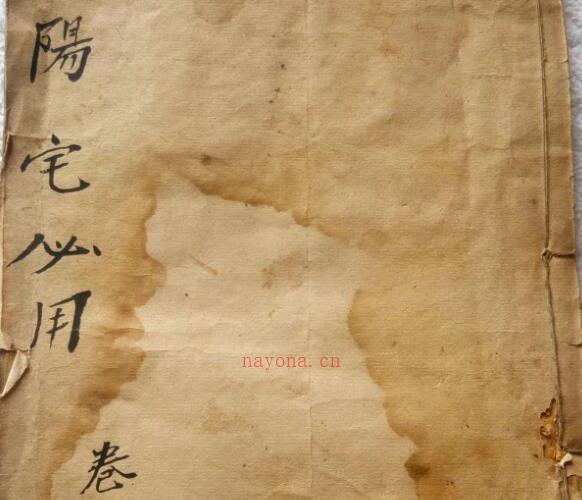 陽宅必用
卷
nayona.cn